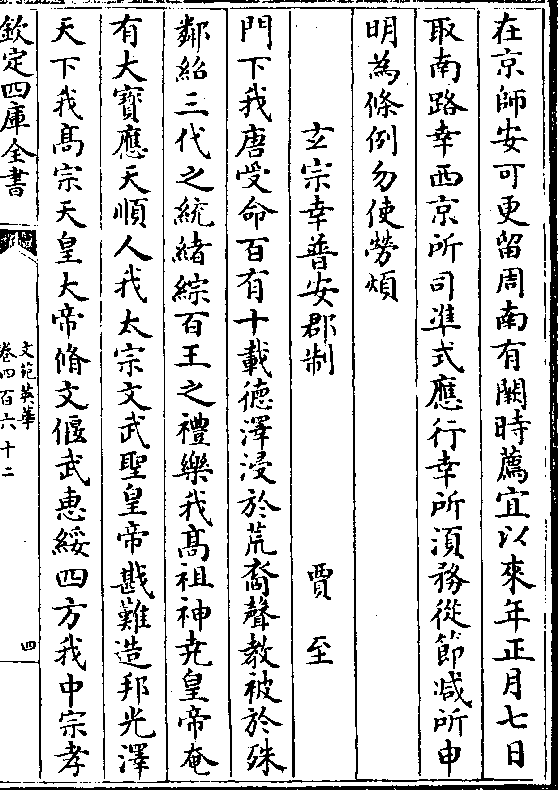 在京師安可更留周南有闕時薦宜以來年正月七日
取南路幸西京所司准式應行幸所須務從節減所申
明為條例勿使勞煩
玄宗幸普安郡制　賈至
門下我唐受命百有十載德澤浸於荒裔聲教被於殊
鄰紹三代之統緒綜百王之禮樂我髙祖神堯皇帝奄
有大寶應天順人我太宗文武聖皇帝戡難造邦光澤
天下我髙宗天皇大帝脩文偃武惠綏四方我中宗孝
欽定四庫全書
文苑英華
卷四百六十二
四